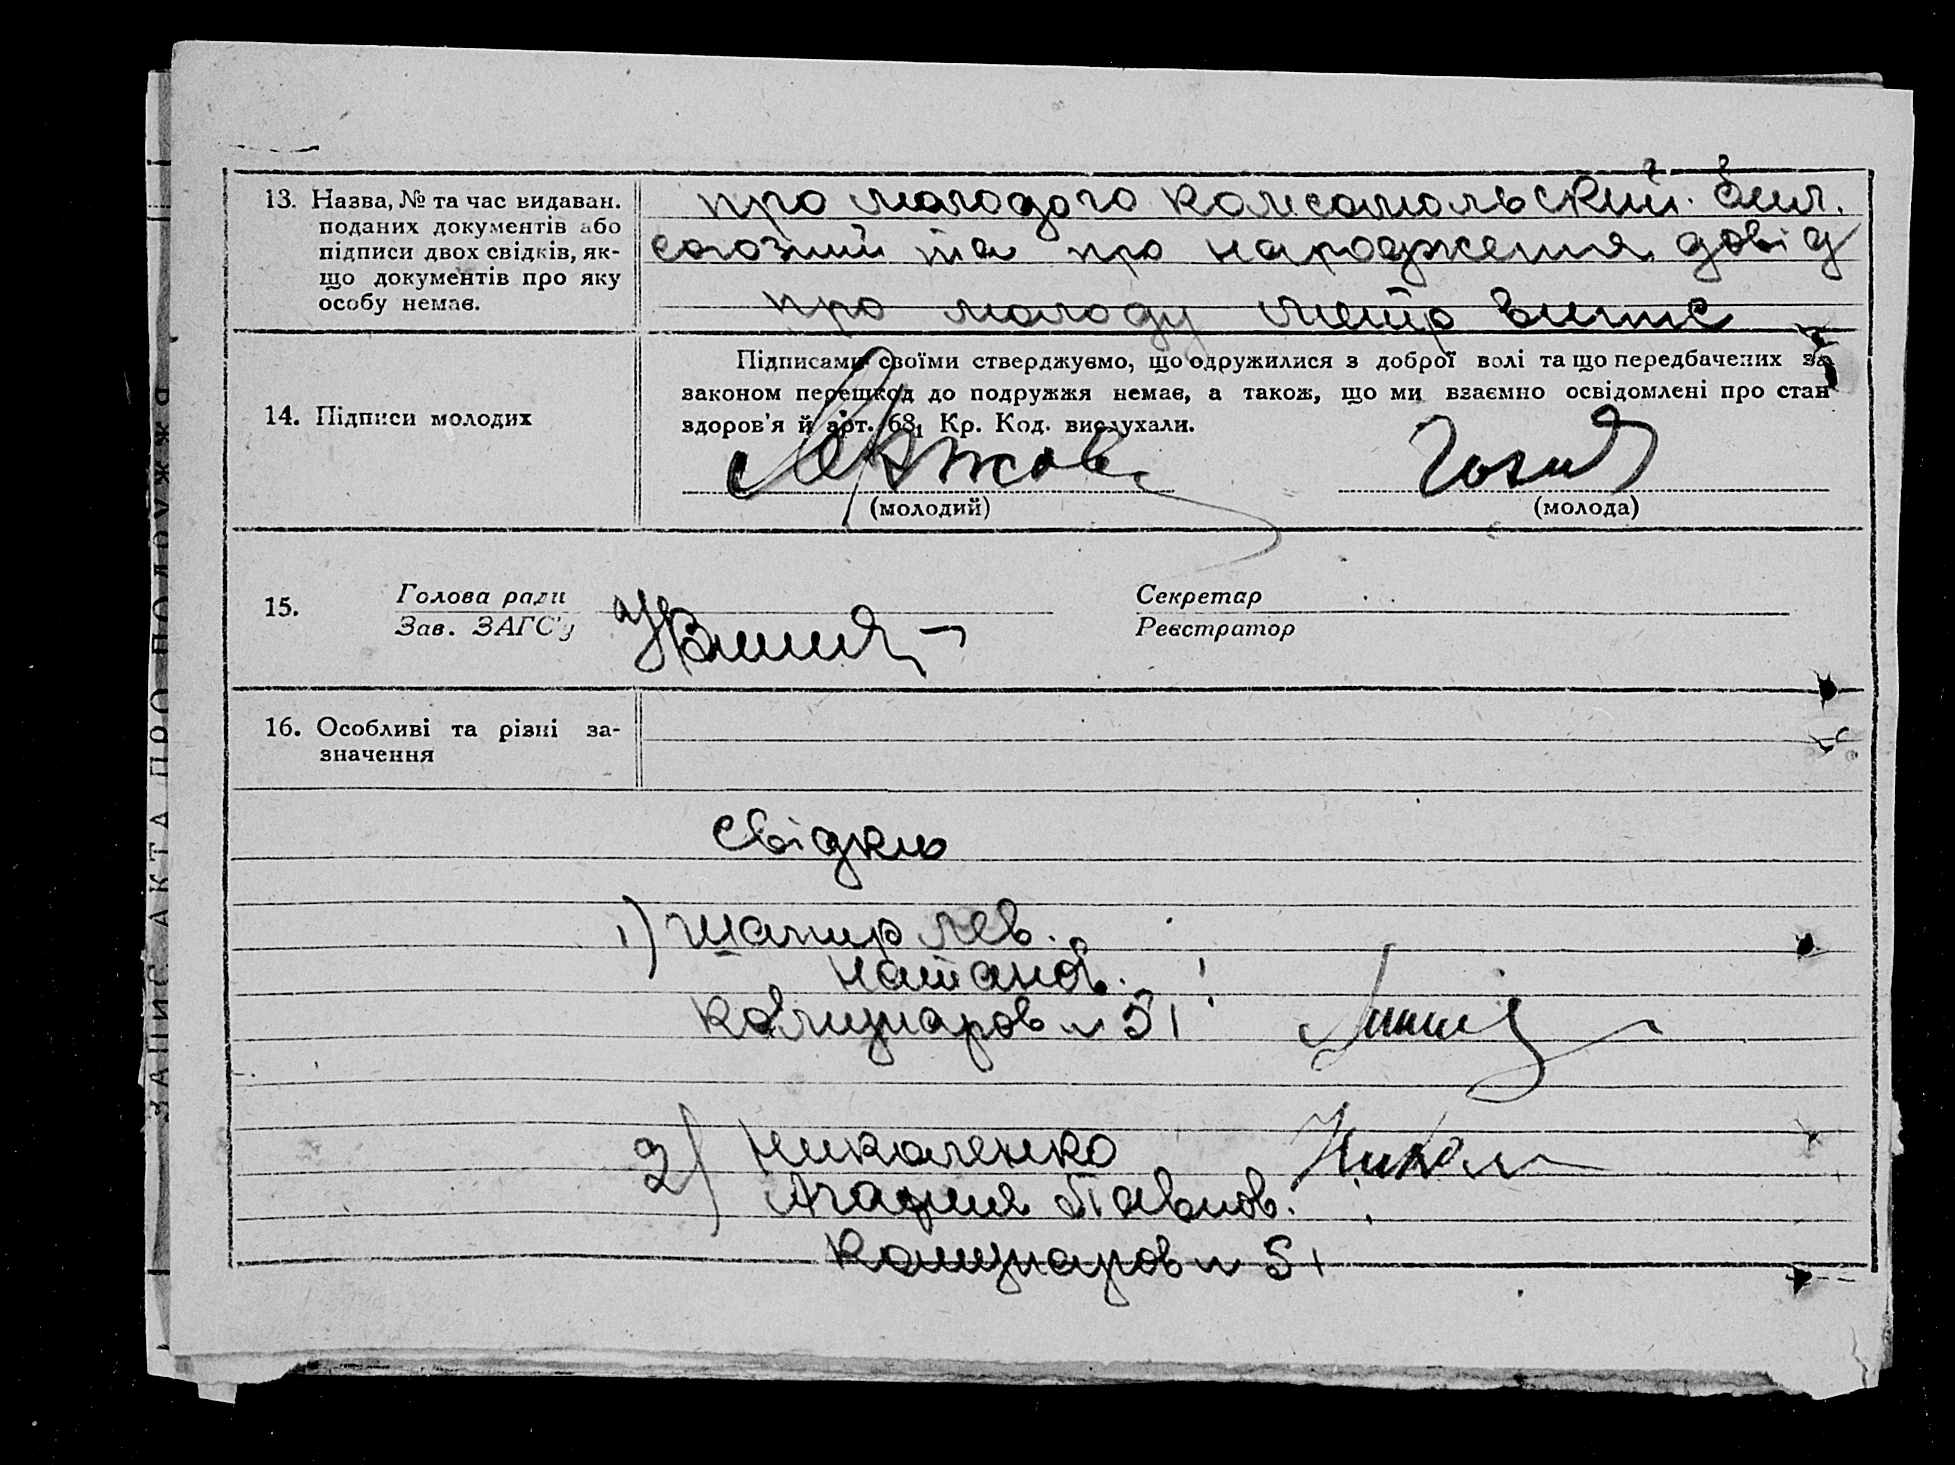 13. Назва, № та час видаван.
поданих документів або
підписи двох свідків, як-
що документів про яку
особу немає.
про молодого комсомольський. бил.
союзний та про народження довід
про молоду метр витяг
14. Підписи молодих
Підписами своїми стверджуємо, що одружилися з доброї волі та що передбачених за
законом перешкод до подружжя немає, а також, що ми взаємно освідомлені про стан
здоров'я й арт. 68₁ Кр. Код. вислухали.
(молодий)
(молода)
15.
Голова ради
Зав. ЗАГС'у
Секретар
Реєстратор
16. Особливі та різні за-
значення
свідки
1) Шапир Лев.
Натанов.
Комунаров 51
2) Николенко
Агафия Павлов.
Комунаров 51
ЗАПИС АКТА ПРО ПОДРУЖЖЯ